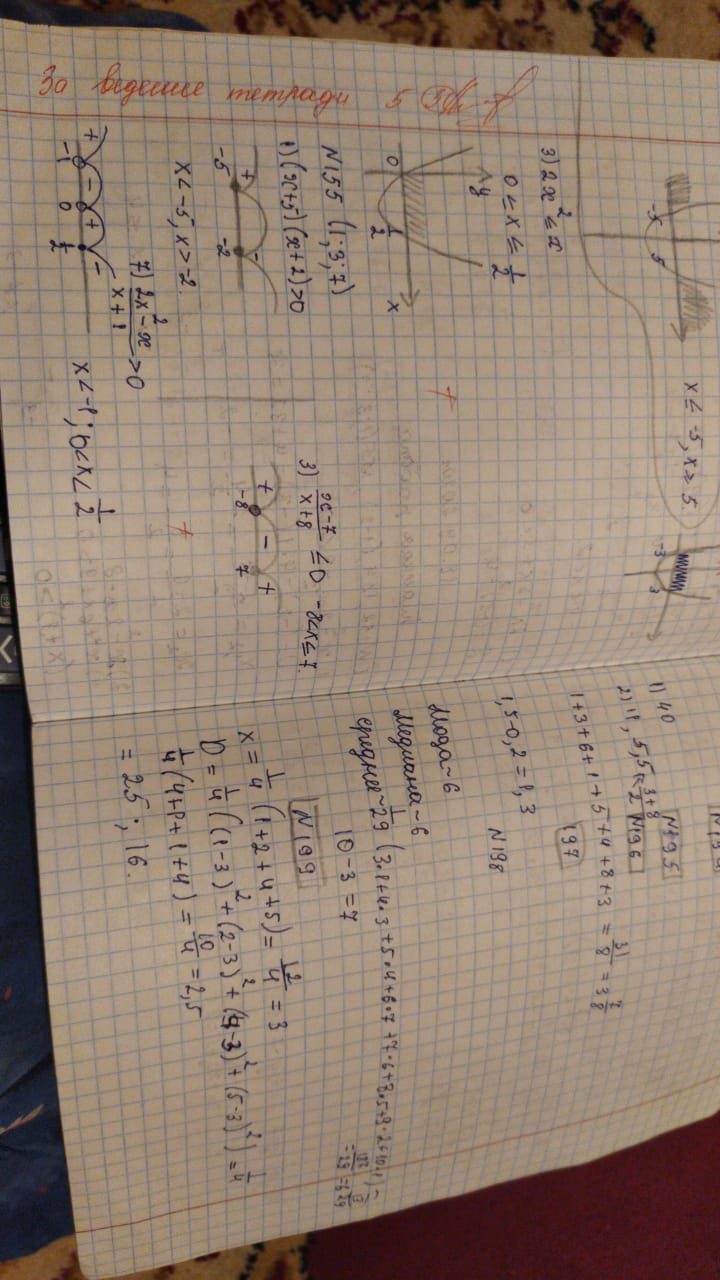 За ведение тетради 5
x ≤ -5, x ≥ 5.
-5 5
-3 3
3) 2x² ≤ x
0 ≤ x ≤ 1/2
y
0 1/2 x
N155 (1; 3; 7)
1) (x+5)(x+2)>0
+ - 
-5 -2
x<-5, x>-2.
3) x-7/x+8 ≤0 -8<x≤7.
+ - +
-8 7
7) 2x²-x/x+1 >0
+ - + -
-1 0 1/2
x<-1; 0<x<1/2
N195
1) 40
N196
2) 11, 5,5 = 3+8/2
1+3+6+1+5+4+8+3 = 31/8 = 3 7/8
197
1,5-0,2=1,3
N198
Мода~6
Медиана~6
среднее~1/29 (3·1+4·3+5·4+6·7+7·6+8·5+9·2+10·1)=
10-3=7
N199
x = 1/4 (1+2+4+5) = 12/4 = 3
D = 1/4 ((1-3)²+(2-3)²+(4-3)²+(5-3)²) = 1/4
1/4 (4+1+1+4) = 10/4 = 2,5
= 25; 16.